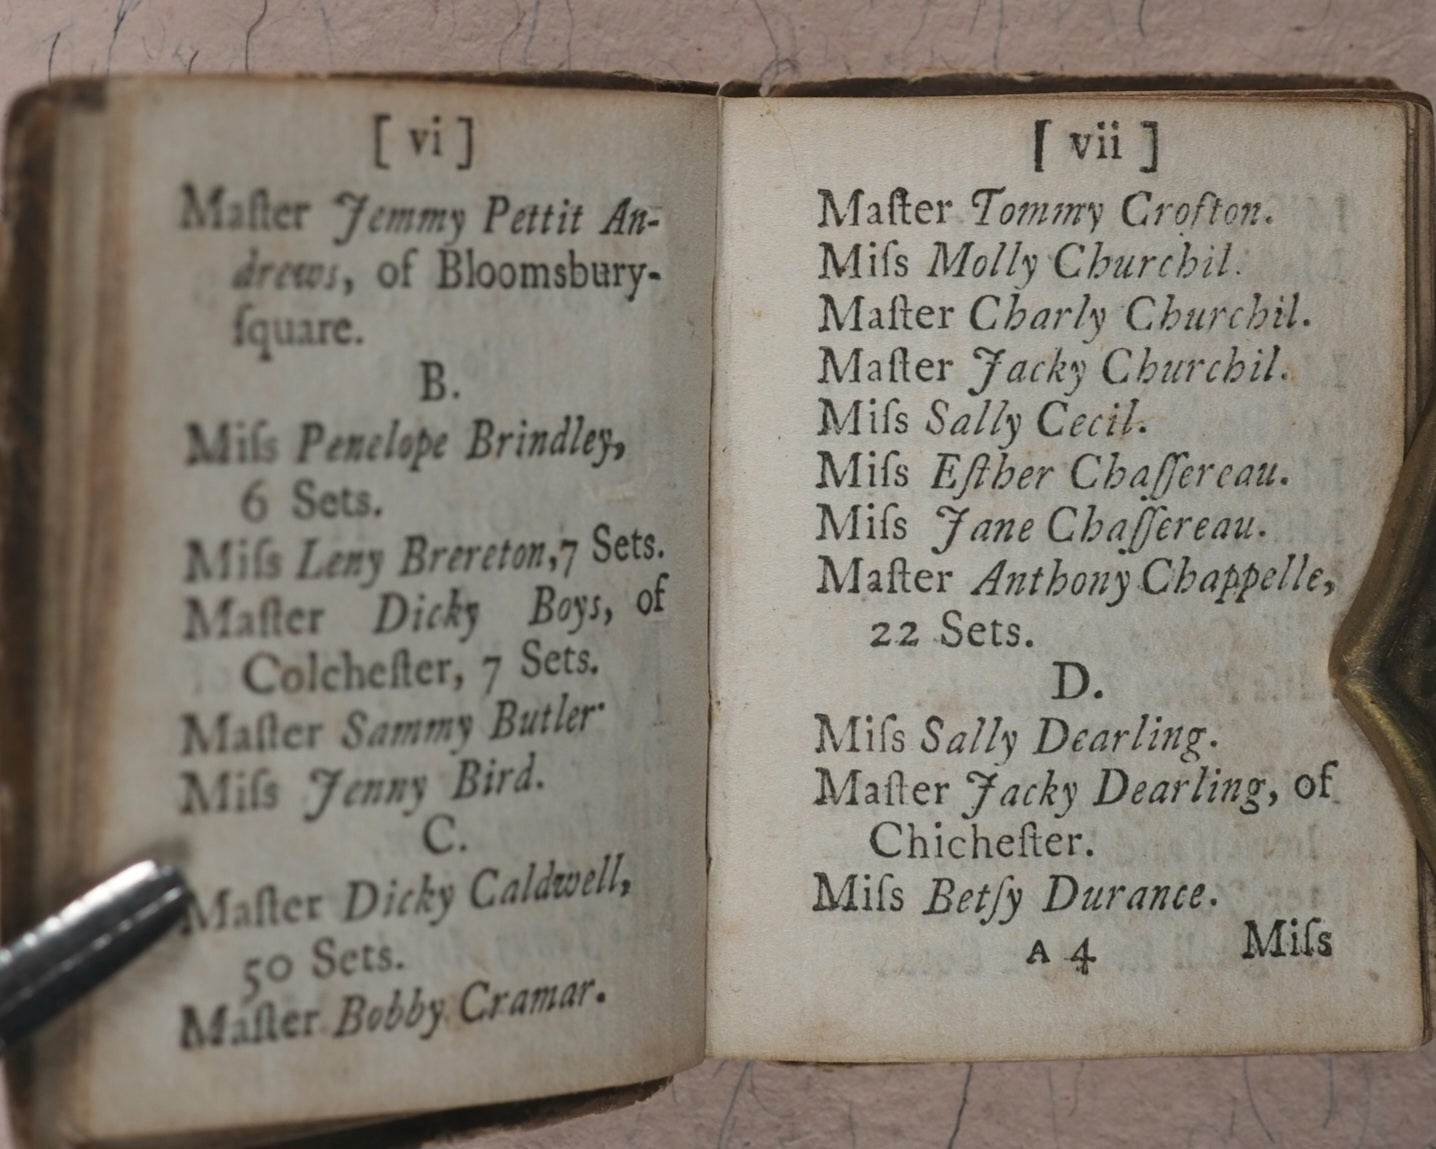 [ vi ]
Maſter Jemmy Pettit An-
drews, of Bloomsbury-
ſquare.
B.
Miſs Penelope Brindley,
6 Sets.
Miſs Leny Brereton,7 Sets.
Maſter Dicky Boys, of
Colcheſter, 7 Sets.
Maſter Sammy Butler·
Miſs Jenny Bird.
C.
Maſter Dicky Caldwell,
50 Sets.
Maſter Bobby Cramar.
[ vii ]
Maſter Tommy Crofton.
Miſs Molly Churchil.
Maſter Charly Churchil.
Maſter Jacky Churchil.
Miſs Sally Cecil.
Miſs Eſther Chaſſereau.
Miſs Jane Chaſſereau.
Maſter Anthony Chappelle,
22 Sets.
D.
Miſs Sally Dearling.
Maſter Jacky Dearling, of
Chicheſter.
Miſs Betſy Durance.
A 4 Miſs